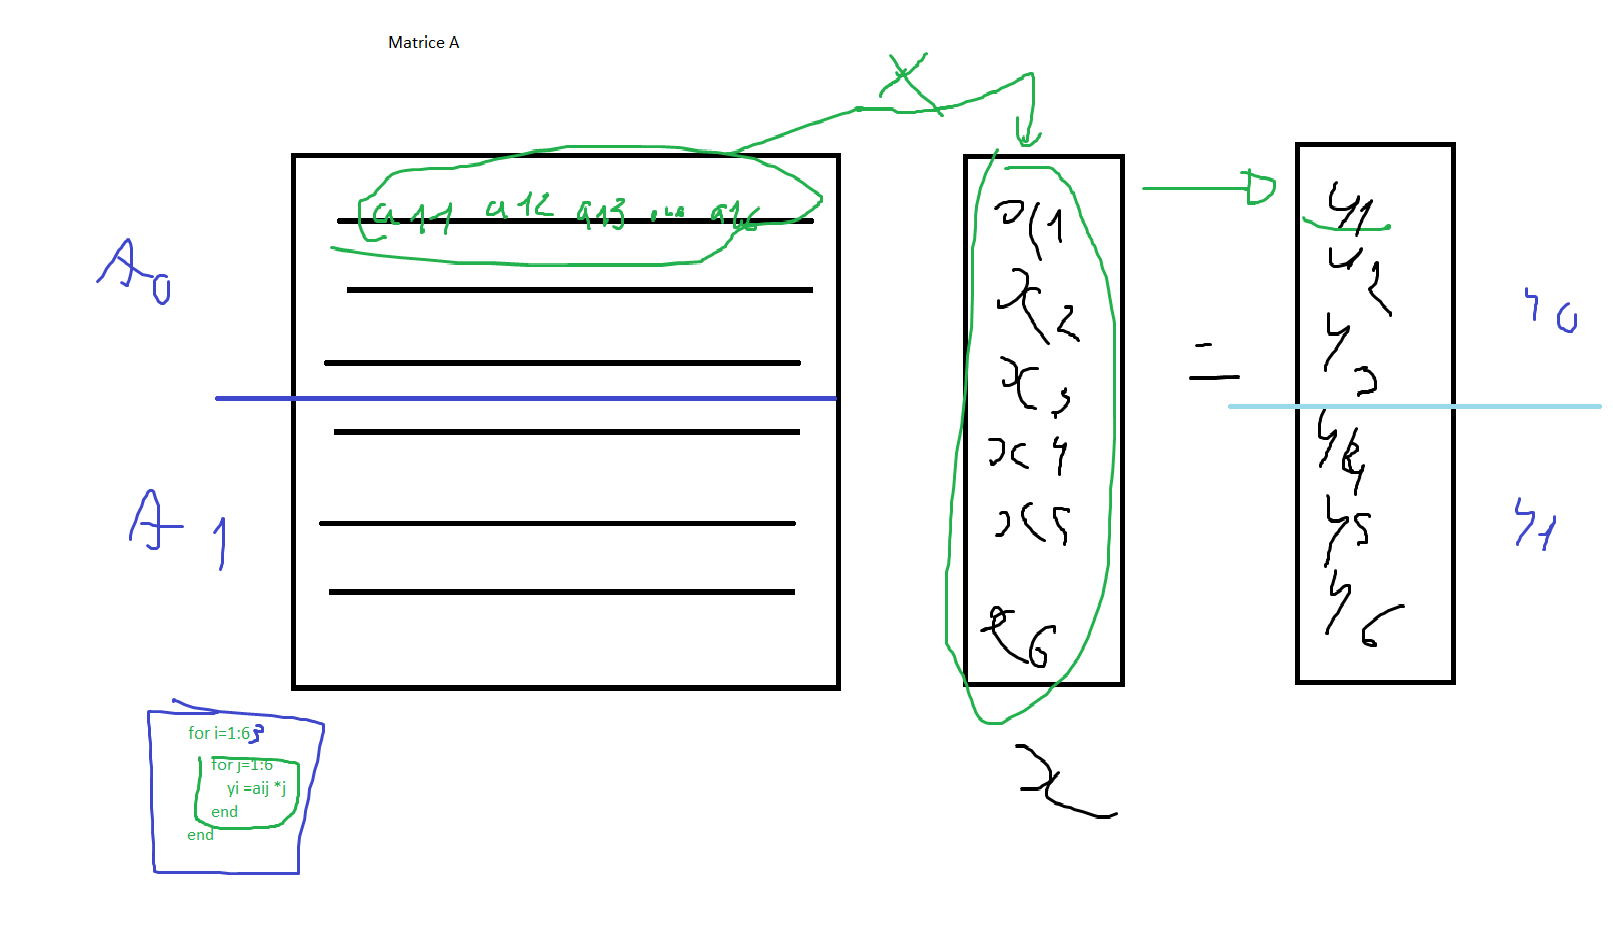 Matrice A
a11 a12 a13 ... a16
A0
A1
x1
x2
x3
x4
x5
x6
x
=
y1
y2
y3
y4
y5
y6
y0
y1
for i=1:6 3
for j=1:6
yi =aij *j
end
end